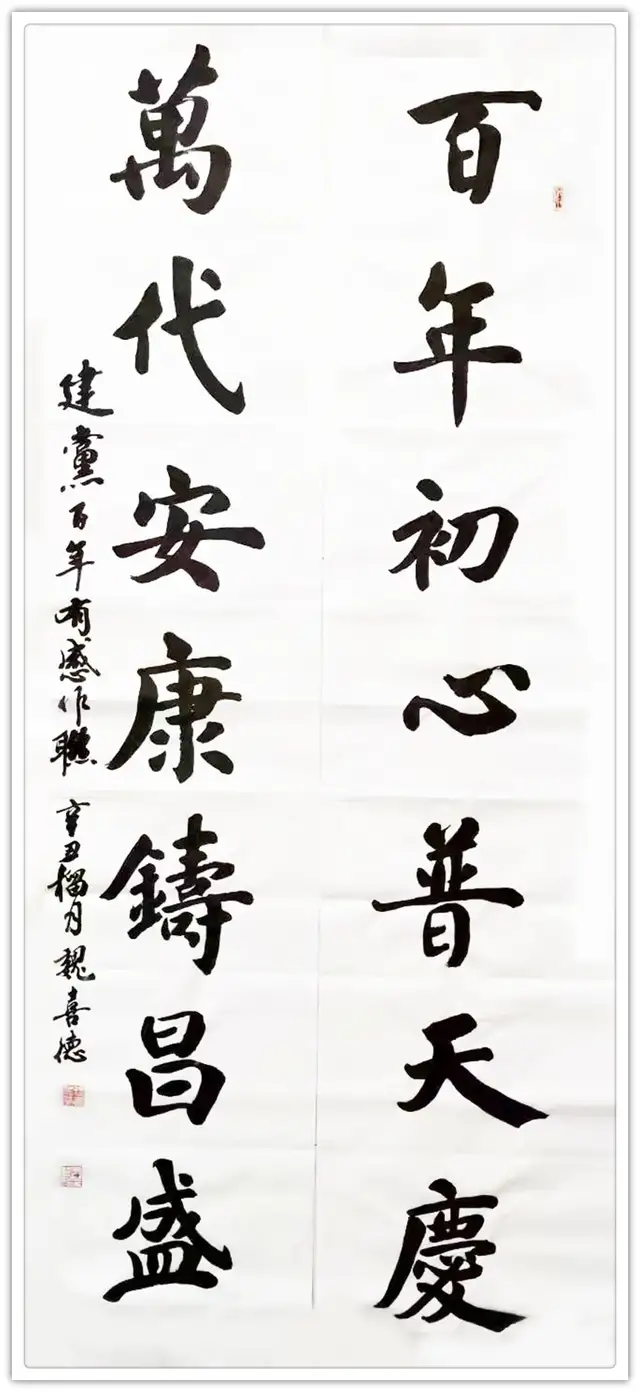 百年初心普天慶
萬代安康鑄昌盛
建黨百年有感作聯 辛丑榴月 魏喜德